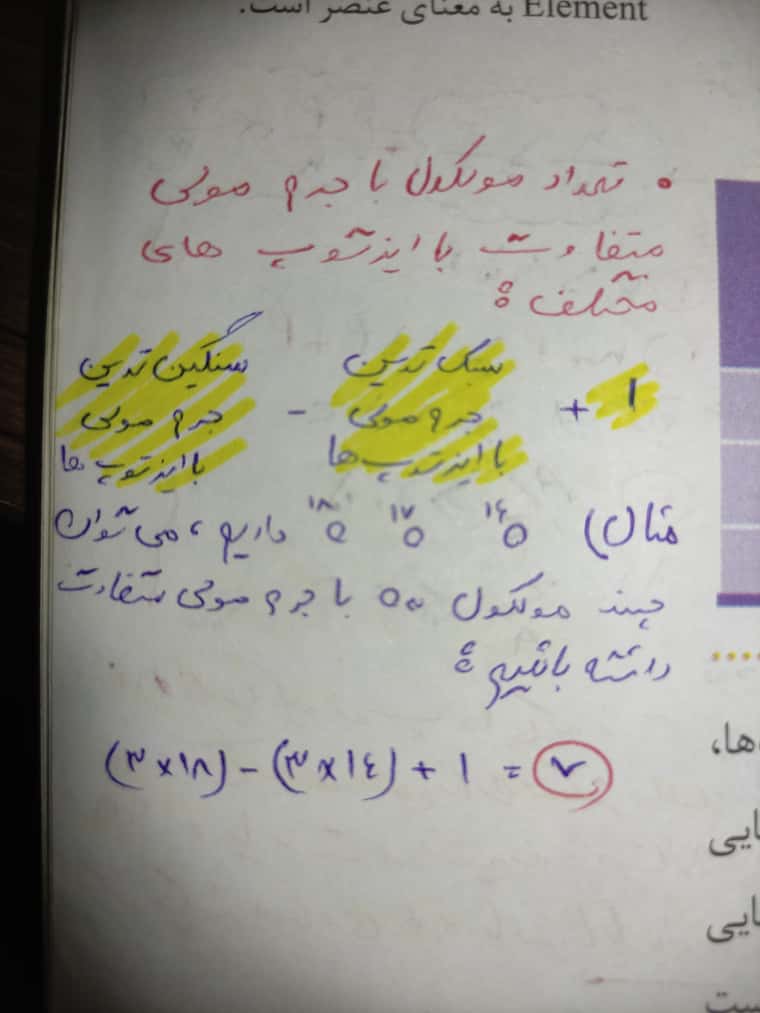 Element به معنای عنصر است.
• تعداد مولکول با جرم مولی
متفاوت با ایزوتوپ های
مختلف :
سنگین ترین جرم مولی با ایزوتوپ ها - سبک ترین جرم مولی با ایزوتوپ ها + ۱
مثال) ¹⁶O ¹⁷O ¹⁸O داریم ، می توان
چند مولکول O₃ با جرم مولی متفاوت
داشته باشیم :
(۳×۱۸) - (۳×۱۶) + ۱ = ۷
ها،
ایی
ایی
ست